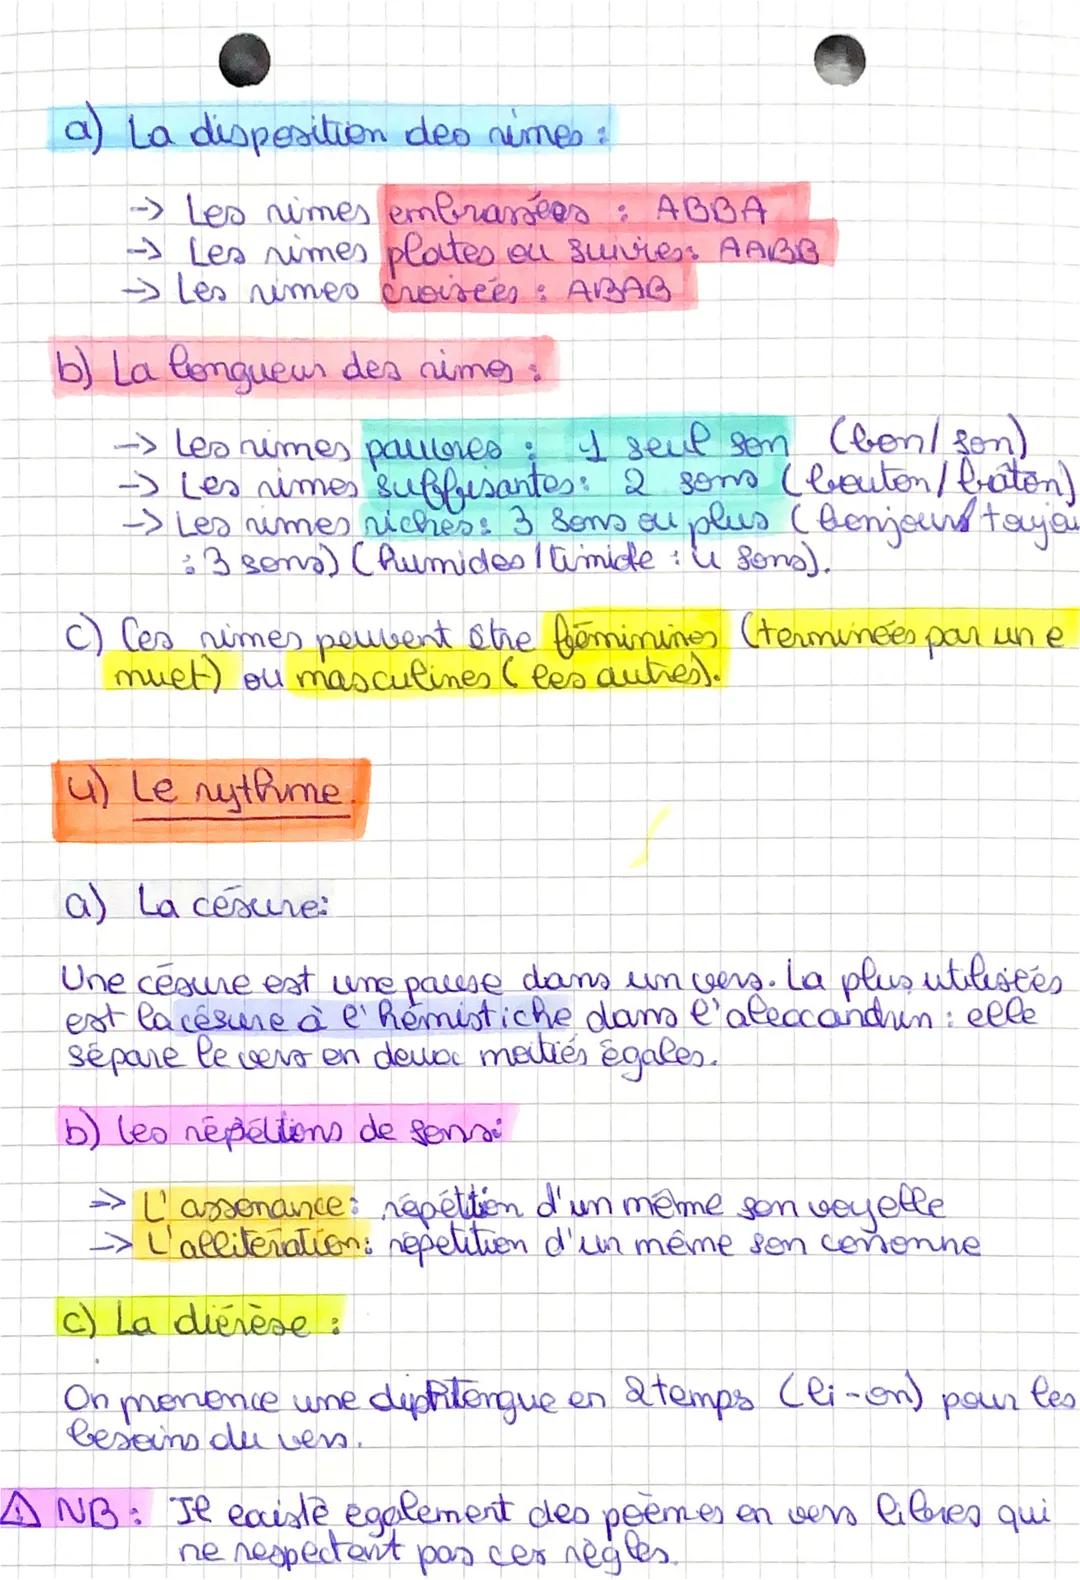 a) La disposition des rimes :
-> Les rimes embrassées : ABBA
-> Les rimes plates ou suivies : AABB
-> Les rimes croisées : ABAB
b) La longueur des rimes :
-> Les rimes pauvres : 1 seul son (bon/son)
-> Les rimes suffisantes : 2 sons (bouton/bâton)
-> Les rimes riches : 3 sons ou plus (bonjour/toujou
: 3 sons) (humides/timide : 4 sons).
c) Ces rimes peuvent être féminines (terminées par un e
muet) ou masculines (les autres).
4) Le rythme.
a) La césure :
Une césure est une pause dans un vers. La plus utilisées
est la césure à l'hémistiche dans l'alexandrin : elle
sépare le vers en deux moitiés égales.
b) Les répétions de sons :
-> L'assonance : répétition d'un même son voyelle
-> L'allitération : répetition d'un même son consonne
c) La diérèse :
On prononce une diphtongue en 2 temps (li-on) pour les
besoins du vers.
⚠ NB : Il existe également des poèmes en vers libres qui
ne respectent pas ces règles.